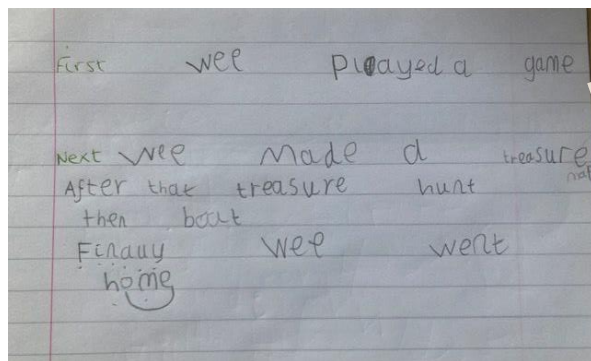 First wee played a game
Next wee made a treasure
map
After that treasure hunt
then boat
Finally wee went
home